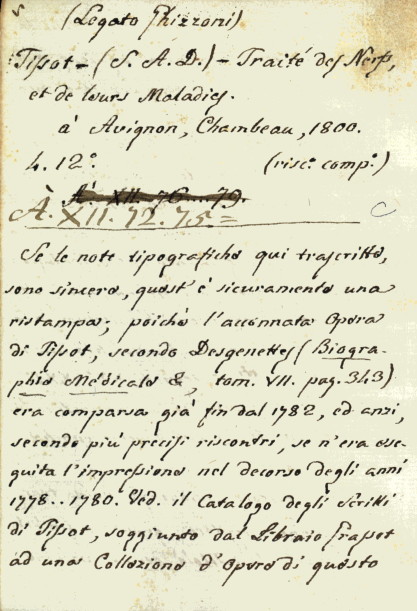 (Legato Ghizzoni)
Tissot - (S. A. D.) - Traité des Nerfs,
et de leurs Maladies.
à Avignon, Chambeau, 1800.
4. 12.º (risc.º comp.º)
À. XII. 76...79.
À. XII. 72. 75. =
Se le note tipografiche qui trascritte,
sono sincere, quest' è sicuramente una
ristampa; poichè l'accennata Opera
di Tissot, secondo Desgenettes (Biogra-
phie Médicale &, tom. VII. pag. 343)
era comparsa già fin dal 1782, ed anzi,
secondo più precisi riscontri, se n'era ese-
guita l'impressione nel decorso degli anni
1778..1780. Ved. il Catalogo degli Scritti
di Tissot, soggiunto dal Libraio Grasset
ad una Collezione d'Opere di questo